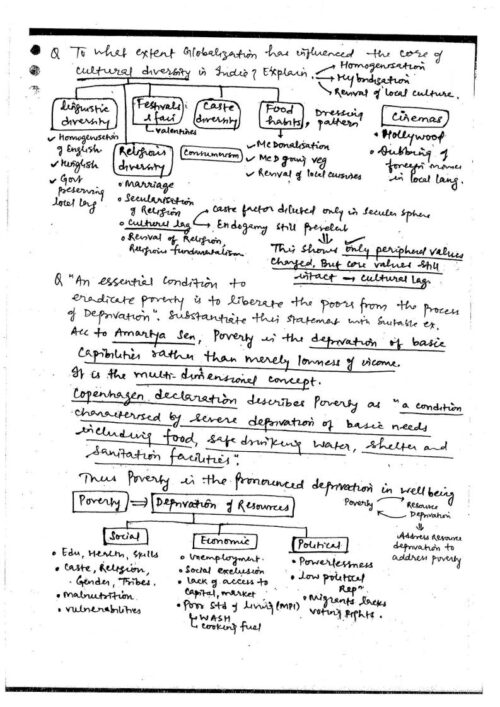 Q To what extent Globalization has influenced the core of
cultural diversity in India? Explain.
Homogenisation
Hybridisation
Revival of local culture.
linguistic diversity
Homogenisation of English
Hinglish
Govt preserving local lang
Festivals & fair
valentines
Religious diversity
Marriage
Secularisation of Religion
Cultural lag
Revival of Religion, Religious fundamentalism
Caste diversity
Consumerism
Food habits, Dressing pattern
McDonalisation
McD going veg
Revival of local cuisines
Cinemas
Hollywood
Dubbing of foreign movies in local lang.
Caste factor diluted only in secular sphere
Endogamy still prevalent
This shows only peripheral values
changed, But core values still
intact → cultural lag.
Q "An essential condition to
eradicate poverty is to liberate the poors from the process
of Deprivation". Substantiate this statement with suitable ex.
Acc to Amartya Sen, Poverty is the deprivation of basic
Capibilities rather than merely lowness of income.
It is the multi-dimensional concept.
Copenhagen declaration describes Poverty as "a condition
characterised by severe deprivation of basic needs
including food, safe drinking water, shelter and
sanitation facilities".
Thus Poverty is the pronounced deprivation in well being
Poverty → Deprivation of Resources
Poverty
Resource Deprivation
Address Resource
deprivation to
address poverty
Social
Edu, Health, skills
Caste, Religion,
Gender, Tribes.
malnutrition
vulnerabilities
Economic
Unemployment.
Social exclusion
lack of access to
capital, market
Poor Std of living (MPI)
WASH
cooking fuel
Political
Powerlessness
low political
Repn
Migrants lacks
voting Rights.